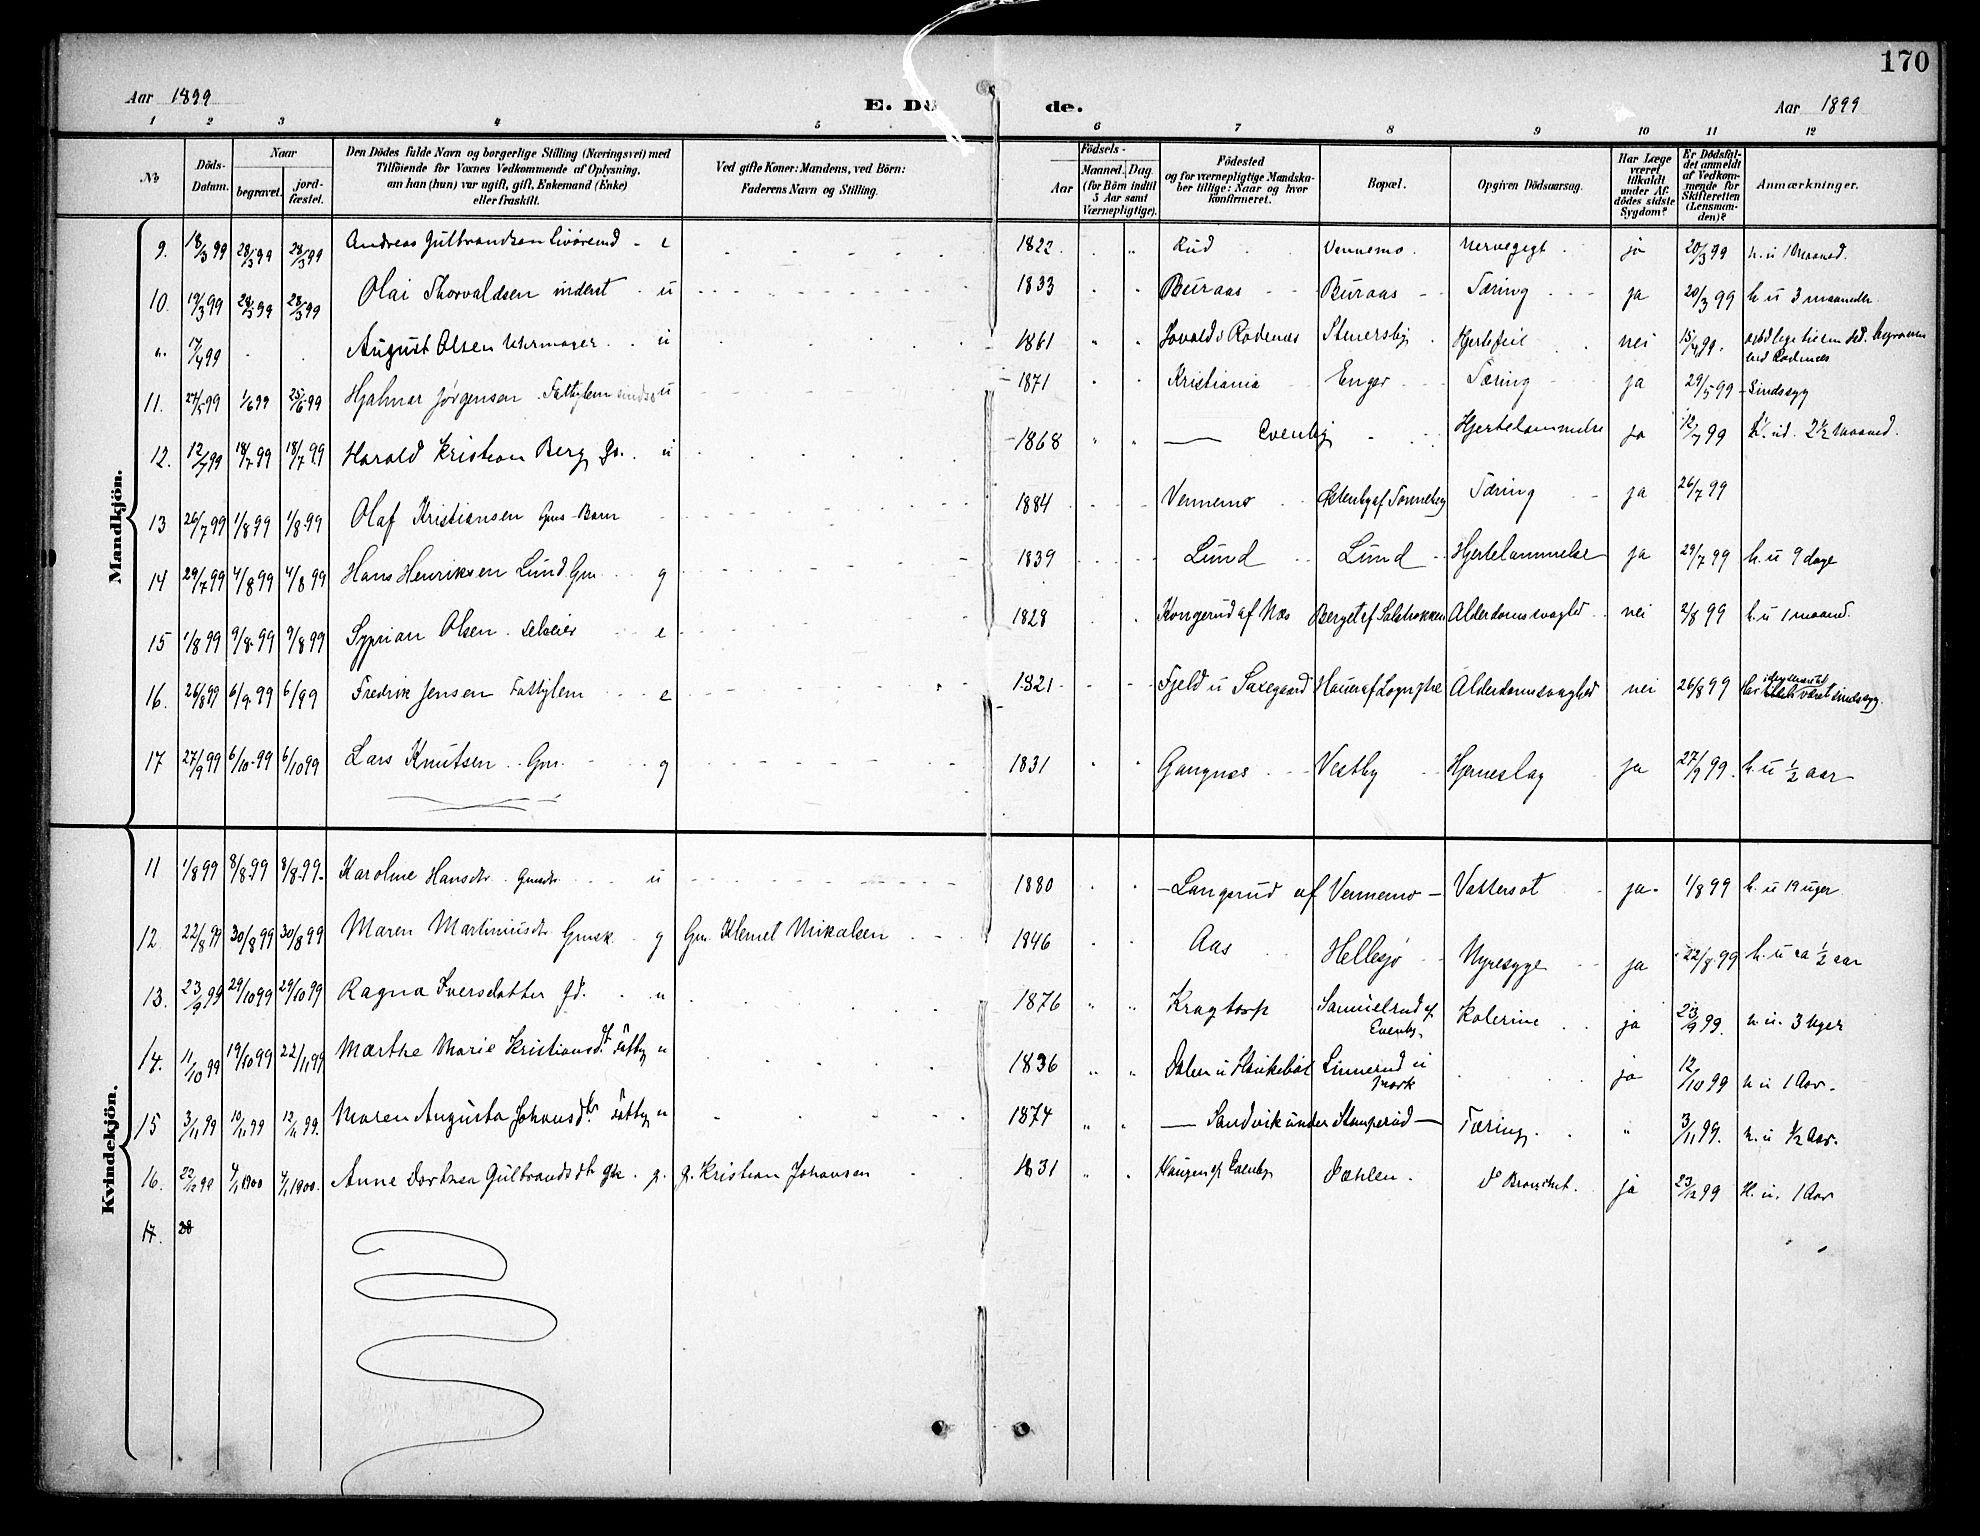 170
Aar 1899 E. Dö de. Aar 1899
1 2 3 4 5 6 7 8 9 10 11 12
No Döds-Datum. Naar begravet. jordfæstet. Den Dödes fulde Navn og borgerlige Stilling (Næringsvei) med Tilföiende for Voxnes Vedkommende af Oplysning, om han (hun) var ugift, gift, Enkemand (Enke) eller fraskilt. Ved gifte Koner: Mandens, ved Börn: Faderens Navn og Stilling. Födsels- Aar Maaned. Dag (for Börn indtil 5 Aar samt Værnepligtige). Födested og for værnepligtige Mandskaber tillige: Naar og hvor konfirmeret. Bopæl. Opgiven Dödsaarsag. Har Læge været tilkaldt under Afdödes sidste Sygdom? Er Dödsfaldet anmeldt af Vedkommende for Skifteretten (Lensmanden)? Anmærkninger.
Mandkjön.
9. 18/3 99 28/3 99 28/3 99 Andreas Gulbrandsen e 1822 Rud Vennemo ja 20/3 99 h. u 1 Maaned.
10. 19/3 99 28/3 99 28/3 99 Olai Thorvaldsen inderst u 1833 Buraas Buraas Tæring ja 20/3 99 h u 3 maaneder
17/4 99 August Olsen Uhrmager u 1861 Rødenæs Stenersby Hjertefeil nei 15/4 99. begraven
ved Rødenæs
11. 27/5 99 1/6 99 25/6 99 Hjalmar Jørgensen Fattiglem u 1871 Kristiania Enger Tæring ja 29/5 99 Sindssyg
12. 12/7 99 18/7 99 18/7 99 Harald Kristian Berg Gs. u 1868 — Evenby Hjertelammelse ja 12/7 99 2½ Maaned.
13 26/7 99 1/8 99 1/8 99 Olaf Kristiansen Gms Barn 1884 Vennemo Tæring ja 26/7 99
14 29/7 99 4/8 99 4/8 99 Hans Henriksen Lund Gm. g 1839 Lund Lund Hjertelammelse ja 29/7 99 h. u 9 dage
15 1/8 99 9/8 99 9/8 99 Syprian Olsen selveier e 1828 Kongerud af Næs Berget af Alderdomssvaghed nei 2/8 99 h. u 1 maaned.
16. 26/8 99 6/9 99 6/9 99 Fredrik Jensen Fattiglem e 1821 Fjeld u Saxegaard Alderdomssvaghed nei 26/8 99 Har været sindssyg.
17 27/9 99 6/10 99 6/10 99 Lars Knutsen Gm. g 1831 Gangnæs Vestby Hjerneslag ja 27/9 99. h. u ½ aar
Kvindekjön.
11 1/8 99 8/8 99 8/8 99 Karoline Hansdtr. Gmsdtr. u 1880 Langerud af Vennemo Vattersot ja 1/8 99 h. u 19 uger
12 22/8 99 30/8 99 30/8 99 Maren Martiniusdtr Gmsk. g Gm. Klemet Mikalsen 1846 Aas Hellesjø Nyresyge ja 22/8 99 h. u ca ½ aar
13. 23/9 99 29/10 99 29/10 99 Ragna Iversdatter Gd. u 1876 Kragtorp Samuelsrud af
Evenby. Kolerine ja 23/9 99. h u. 3 Uger
14. 11/10 99 19/10 99 22/11 99 Marthe Marie Kristiansdt. Fattig u 1836 Dalen u Linnerud u
Mork ja 12/10 99 h u 1 Aar.
15 3/11 99 10/11 99 12/11 99. Maren Augusta Johansdtr. Fattig u 1874 — Sandvik under Stomperud — Tæring. " 3/11 99. h. u ½ Aar.
16. 22/12 99 4/1 1900 4/1 1900. Anne Dorthea Gulbrandsdtr Gk. g. g. Kristian Johansen 1831 Haugen af Evenby Dæhlen. ja 23/12 99 H. u. 1 Aar
17. 28